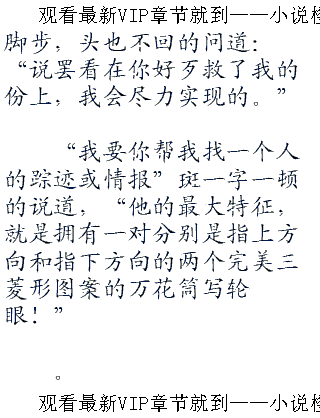 观看最新VIP章节就到——小说
脚步，头也不回的问道：
“说罢看在你好歹救了我的
份上，我会尽力实现的。”
“我要你帮我找一个人
的踪迹或情报”斑一字一顿
的说道，“他的最大特征，
就是拥有一对分别是指上方
向和指下方向的两个完美三
菱形图案的万花筒写轮
眼！”
。
观看最新VIP章节就到——小说